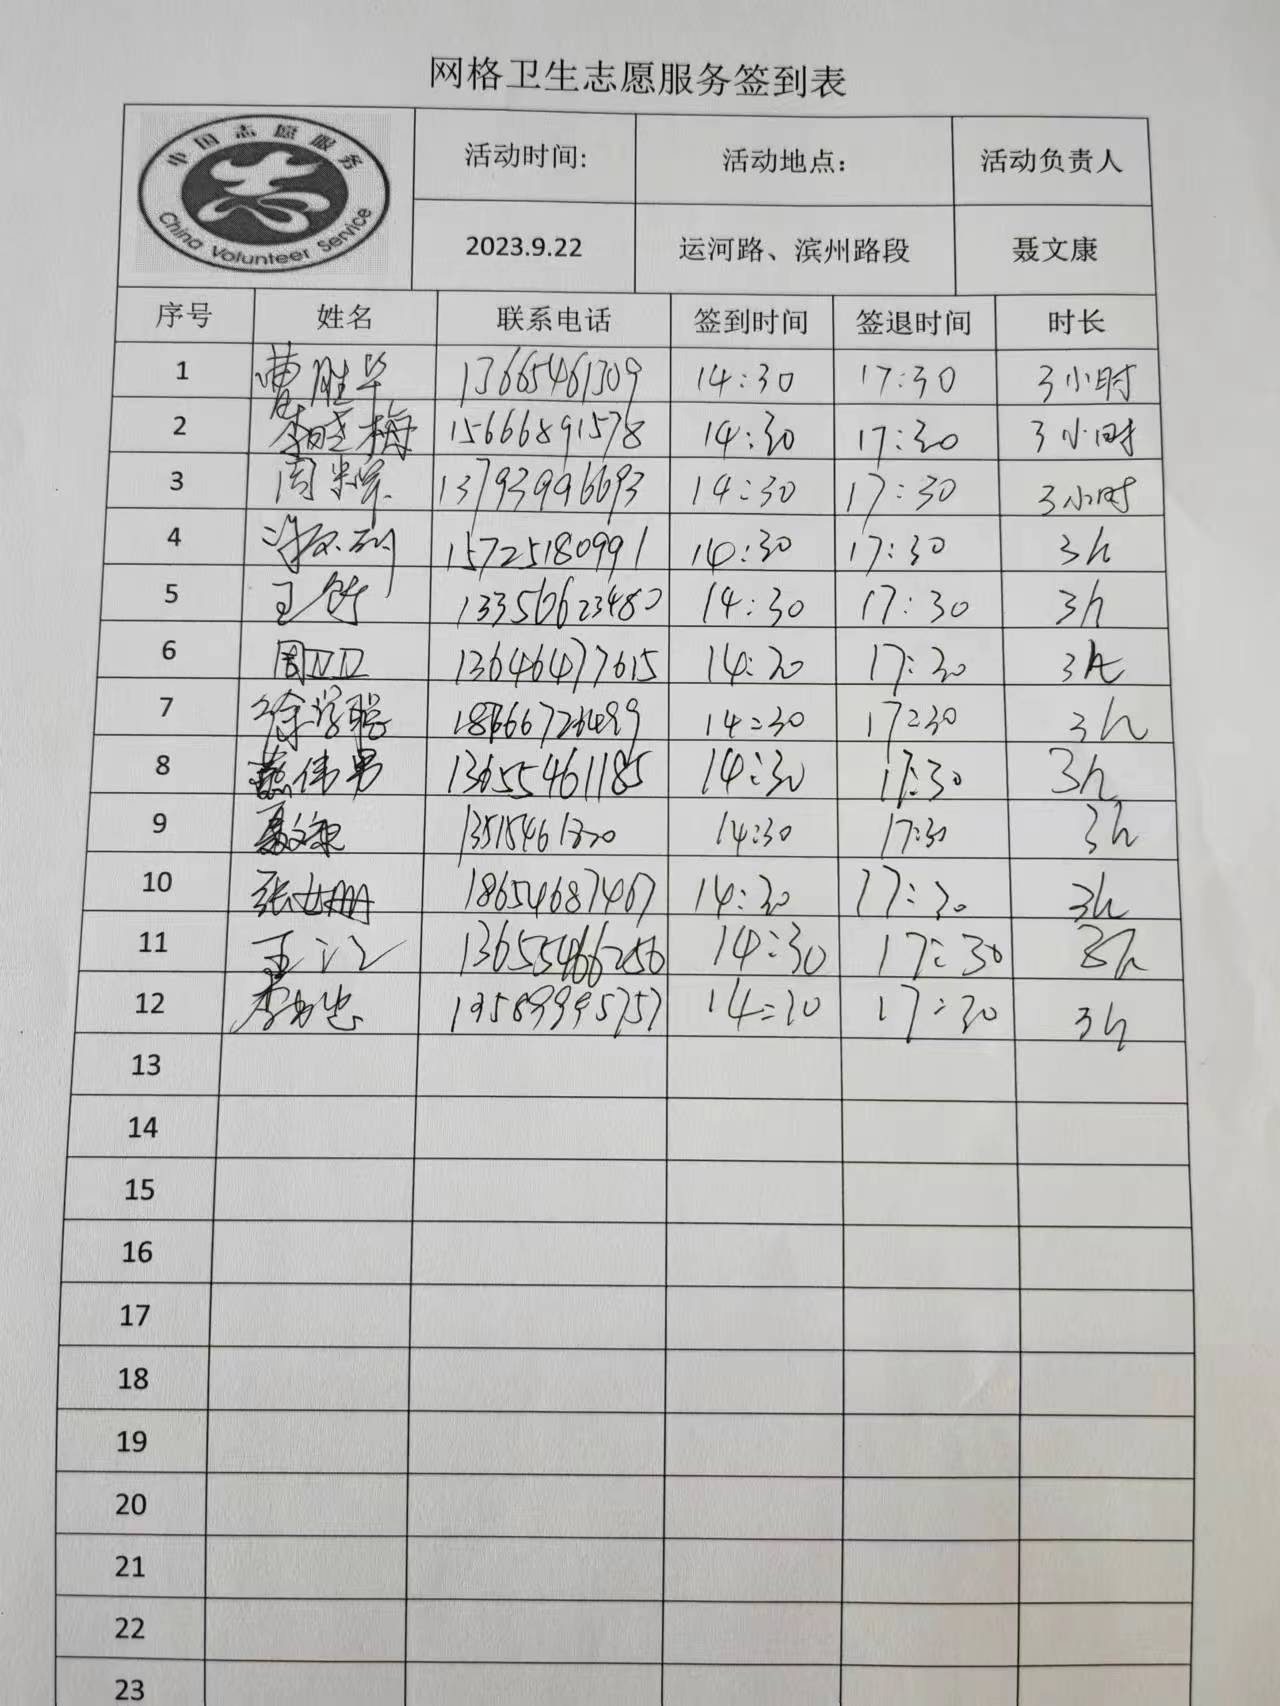 网格卫生志愿服务签到表
中国志愿服务
China Volunteer Service
活动时间: 活动地点: 活动负责人
2023.9.22 运河路、滨州路段 聂文康
序号 姓名 联系电话 签到时间 签退时间 时长
1 曹胜华 13665461309 14:30 17:30 3小时
2 李晓梅 15666891578 14:30 17:30 3小时
3 周 13793996693 14:30 17:30 3小时
4 15725180991 14:30 17:30 3h
5 王 13356623480 14:30 17:30 3h
6 周卫卫 13646477615 14:30 17:30 3h
7 徐学聪 14:30 17:30 3h
8 燕伟男 13655461185 14:30 17:30 3h
9 聂文康 14:30 17:30 3h
10 张女册 18654687467 14:30 17:30 3h
11 王江 13655466256 14:30 17:30 3h
12 李 14:30 17:30 3h
13
14
15
16
17
18
19
20
21
22
23